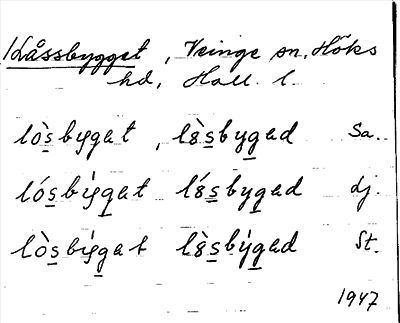 Kåssbygget, Veinge sn, Höks
hd, Hall. l.
lòsbygat, lȣ̀sbygad Sa.
lósbýgat lȣ́sbygad Lj.
lòsbýgat lȣ̀sbýgad St.
1947